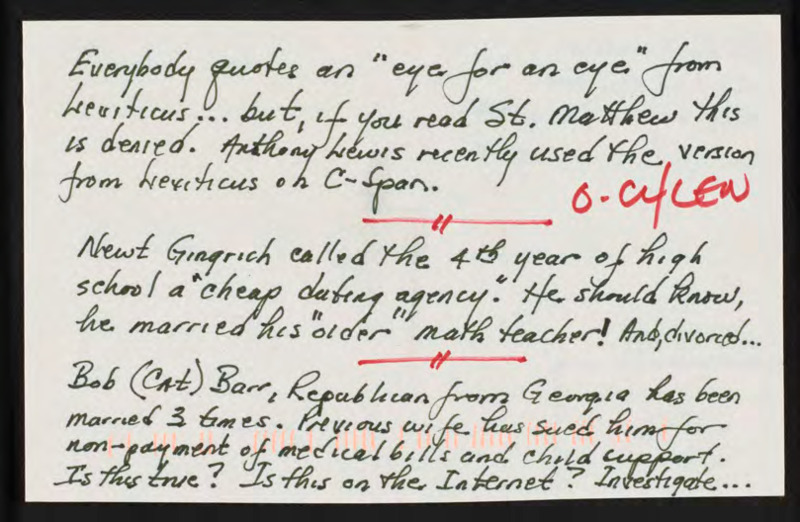 Everybody quotes an "eye for an eye" from
Leviticus... but, if you read St. Matthew this
is denied. Anthony Lewis recently used the version
from Leviticus on C-Span.
O. CYLEW
Newt Gingrich called the 4th year of high
school a "cheap dating agency." He should know,
he married his "older" math teacher! And, divorced...
Bob (CAt) Barr, Republican from Georgia has been
married 3 times. Previous wife has sued him for
non-payment of medical bills and child support.
Is this true? Is this on the Internet? Investigate...